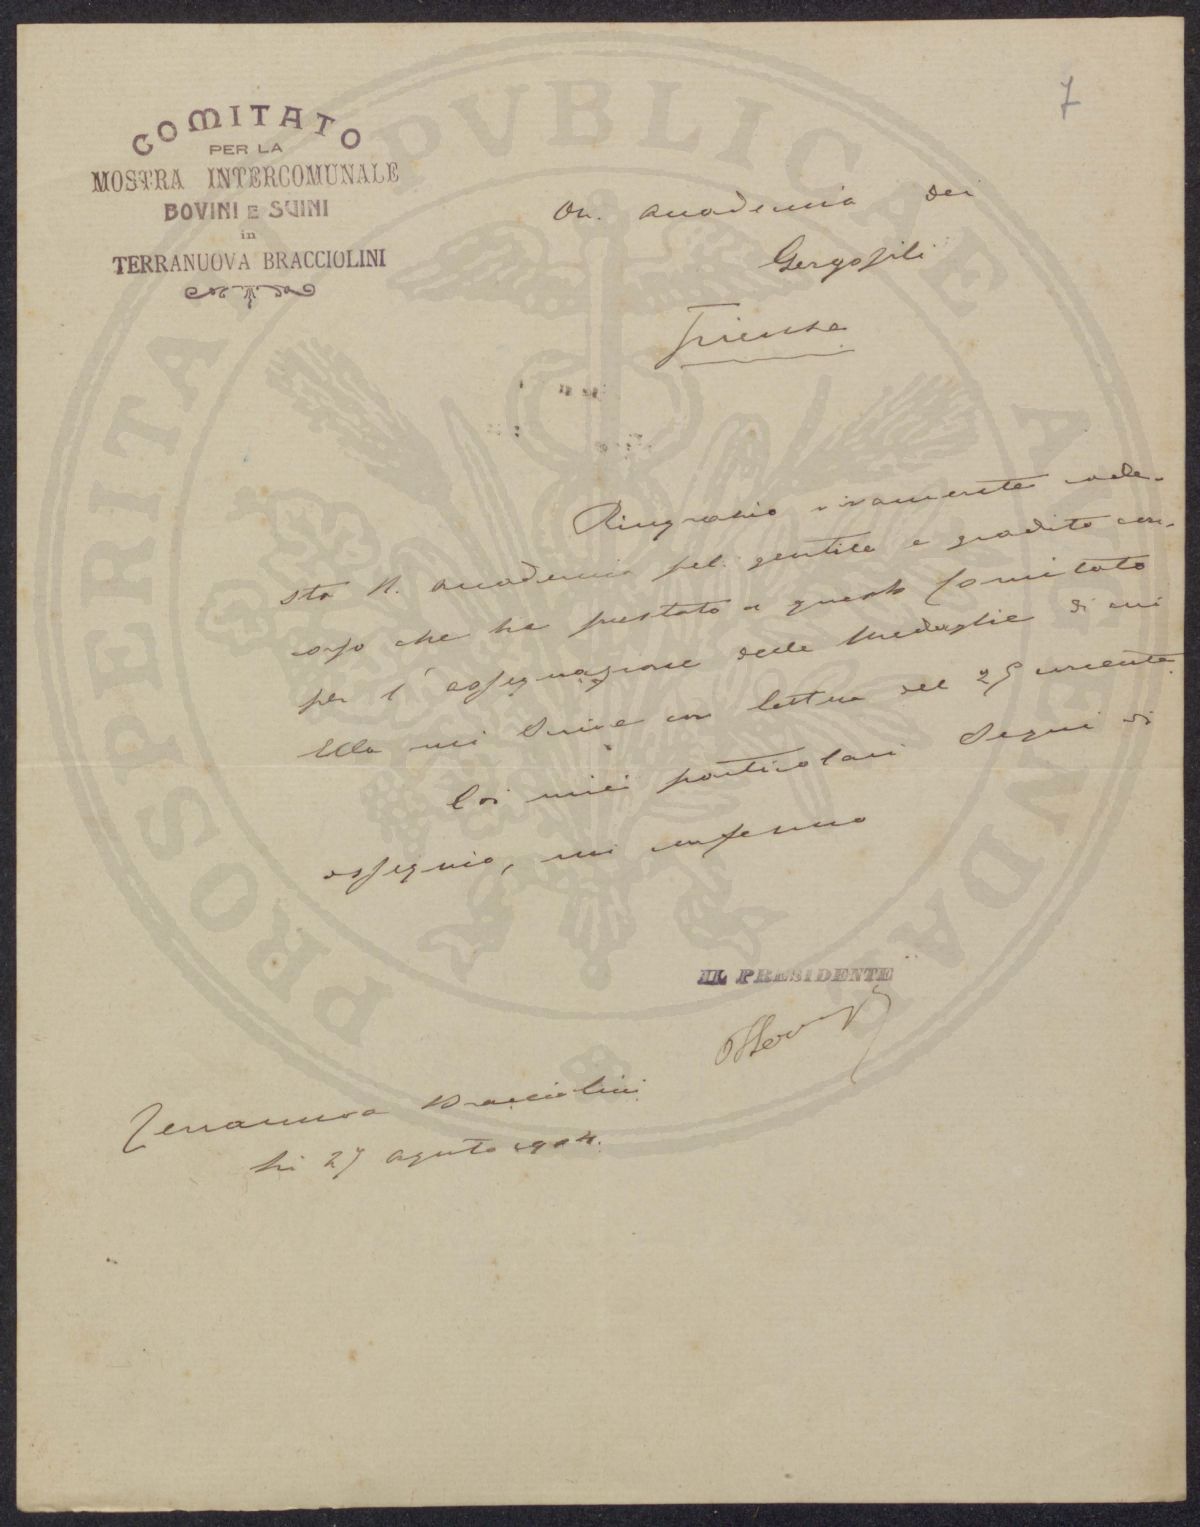 7
COMITATO
PER LA
MOSTRA INTERCOMUNALE
BOVINI E SUINI
in
TERRANUOVA BRACCIOLINI
On. Accademia dei
Gergofili
Firenze
Ringrazio vivamente code-
sta R. Accademia pel gentile e gradito con-
corso che ha prestato a questo Comitato
per l'assegnazione delle Medaglie di cui
Ella mi scrive con lettera del 25 corrente.
Coi miei particolari segni di
ossequio, mi confermo
IL PRESIDENTE
Terranuova Bracciolini
li 27 agosto 1904.
PROSPERITATI PVBLICAE AVGENDAE